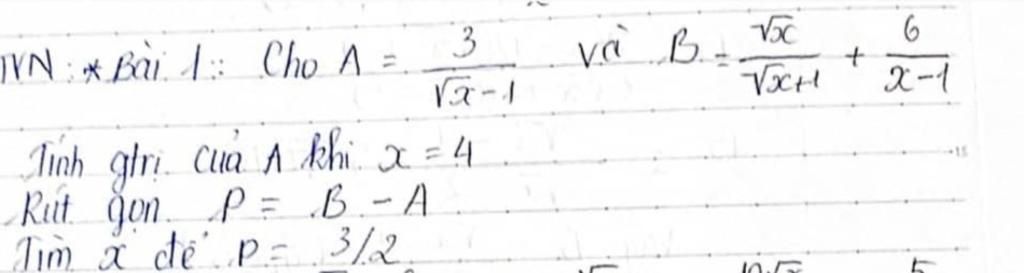 IVN: * Bài 1:: Cho A = 3/(√x-1) và B = √x/(√x+1) + 6/(x-1)
Tính gtrị của A khi x = 4
Rút gọn P = B - A
Tìm x để P = 3/2